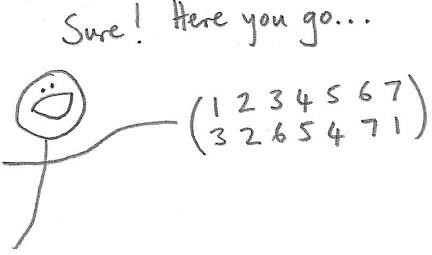 Sure! Here you go...
(1 2 3 4 5 6 7
3 2 6 5 4 7 1)